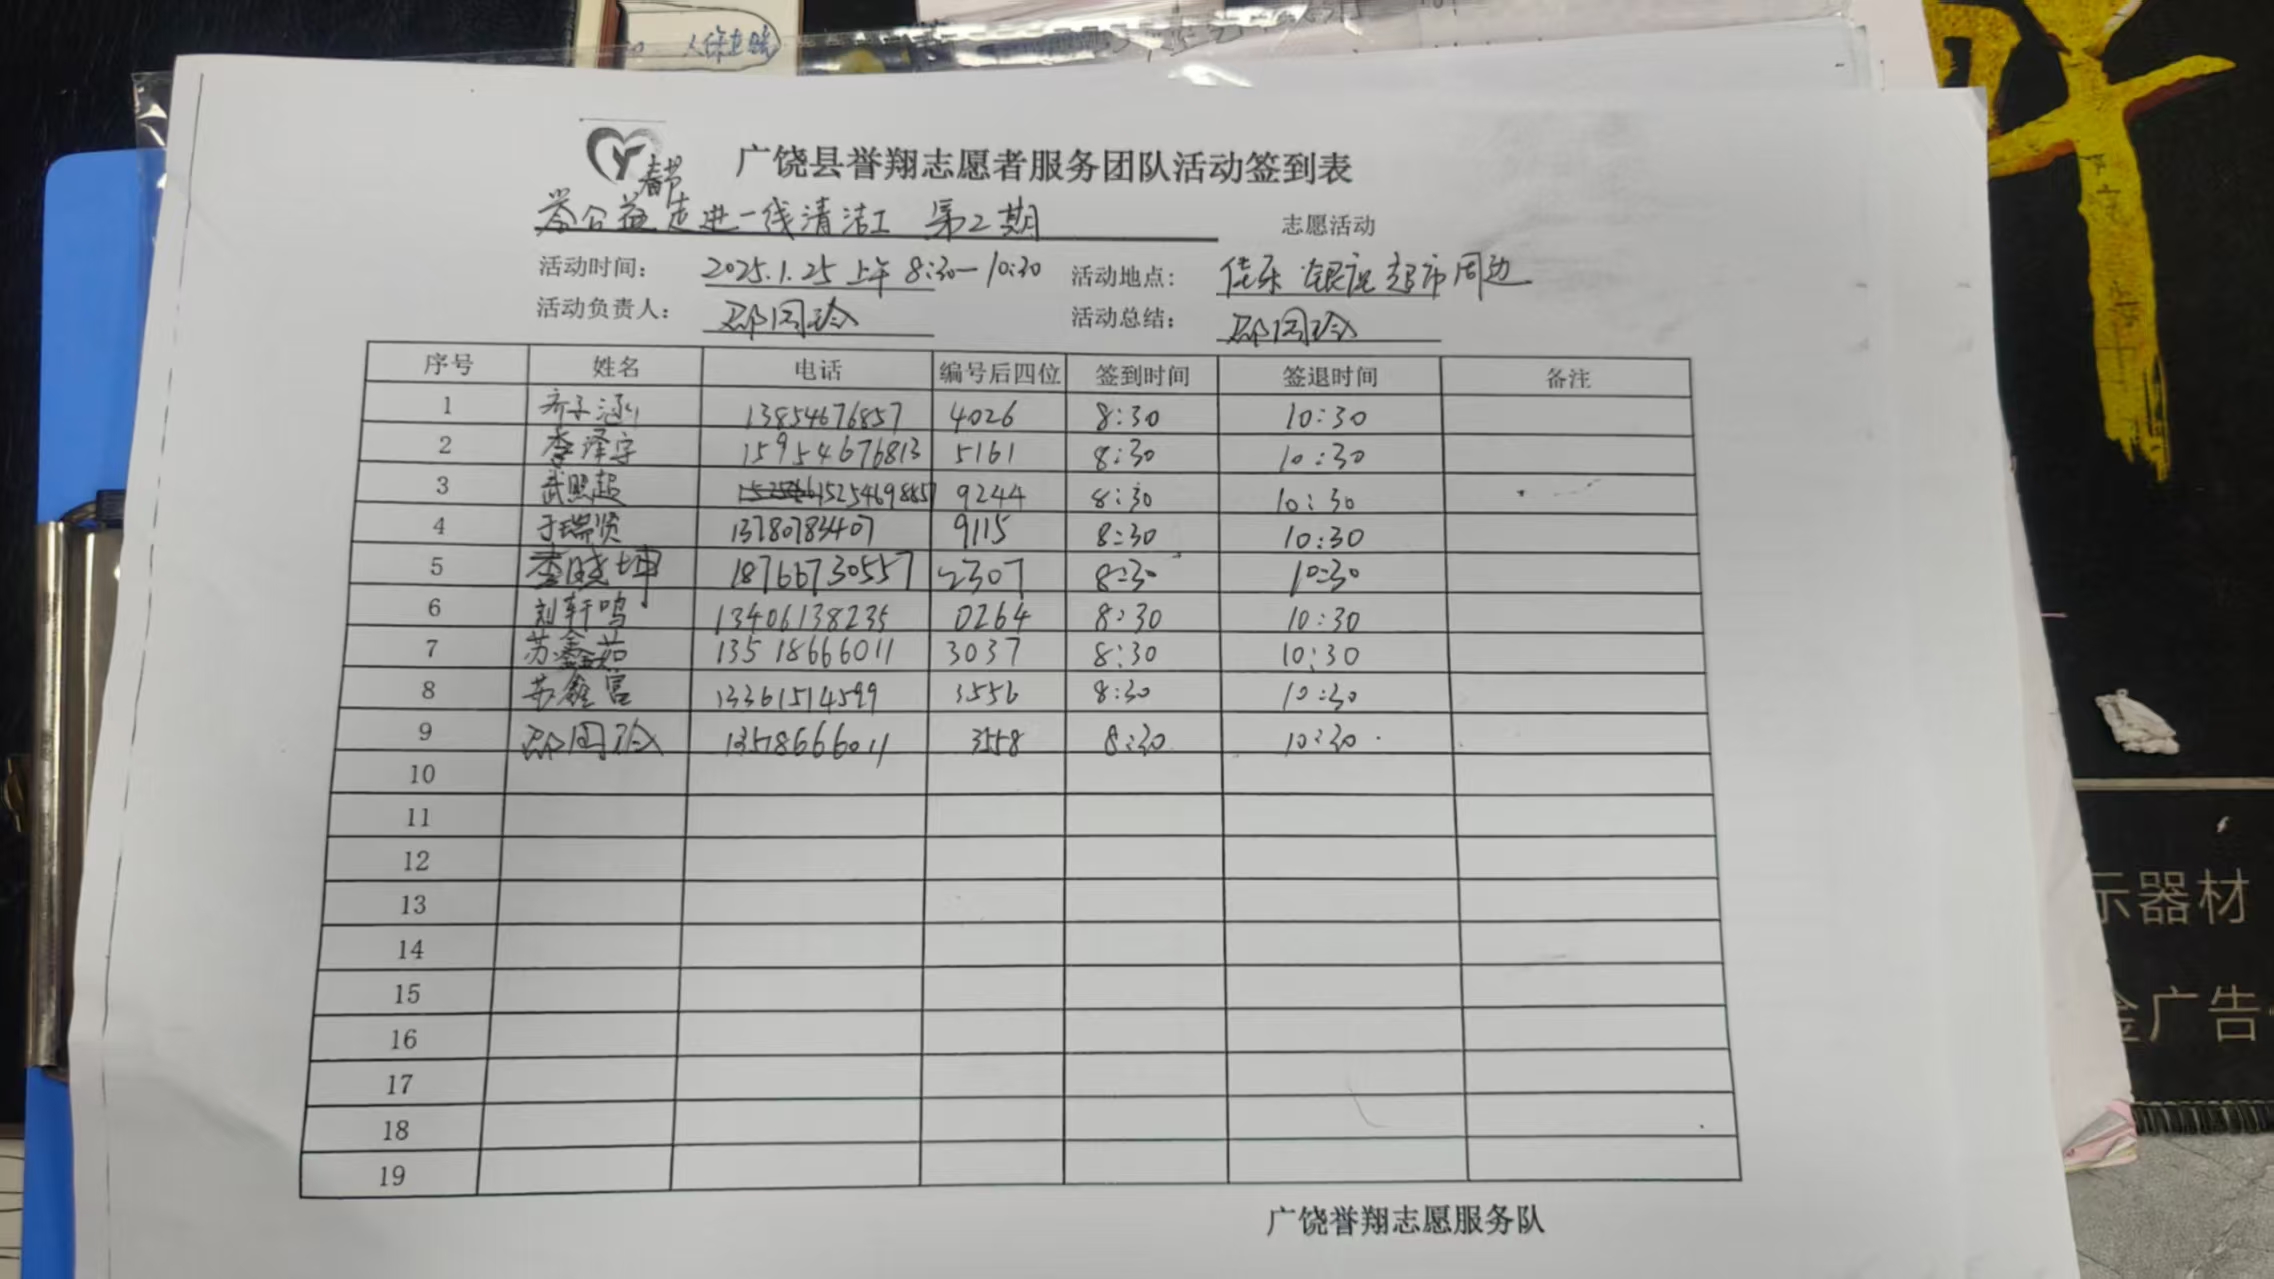 广饶县誉翔志愿者服务团队活动签到表
春节
誉公益走进一线清洁工 第2期 志愿活动
活动时间: 2025.1.25 上午 8:30-10:30 活动地点: 佳乐 银座超市周边
活动负责人: 活动总结:
序号 姓名 电话 编号后四位 签到时间 签退时间 备注
1 齐子涵 13854676857 4026 8:30 10:30
2 李泽宇 15954676813 5161 8:30 10:30
3 武照超 15254698857 9244 8:30 10:30
4 于瑞贤 13780783407 9115 8:30 10:30
5 李晓坤 18766730557 2307 8:30 10:30
6 刘轩鸣 13406138235 0264 8:30 10:30
7 苏鑫茹 13518666011 3037 8:30 10:30
8 13361514599 3556 8:30 10:30
9 13518666011 3558 8:30 10:30
10
11
12
13
14
15
16
17
18
19
广饶誉翔志愿服务队
示器材
金广告